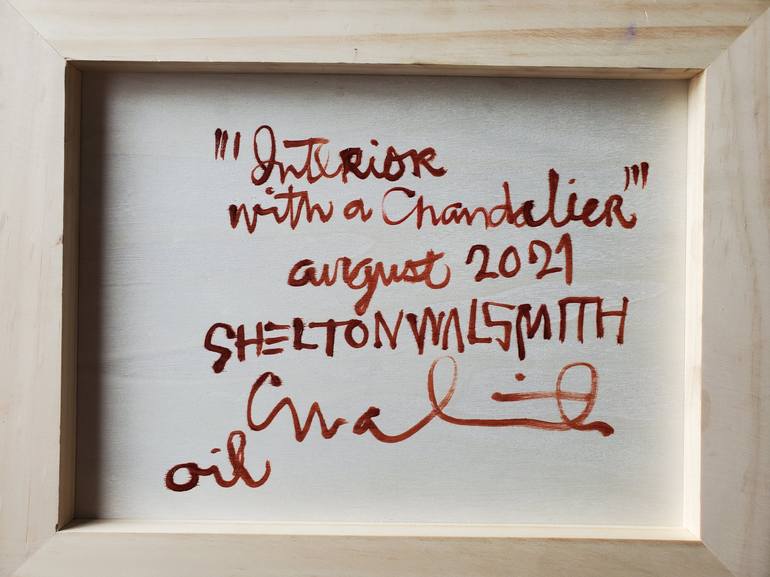 "'Interior
with a Chandelier'"
august 2021
SHELTONWALSMITH
oil